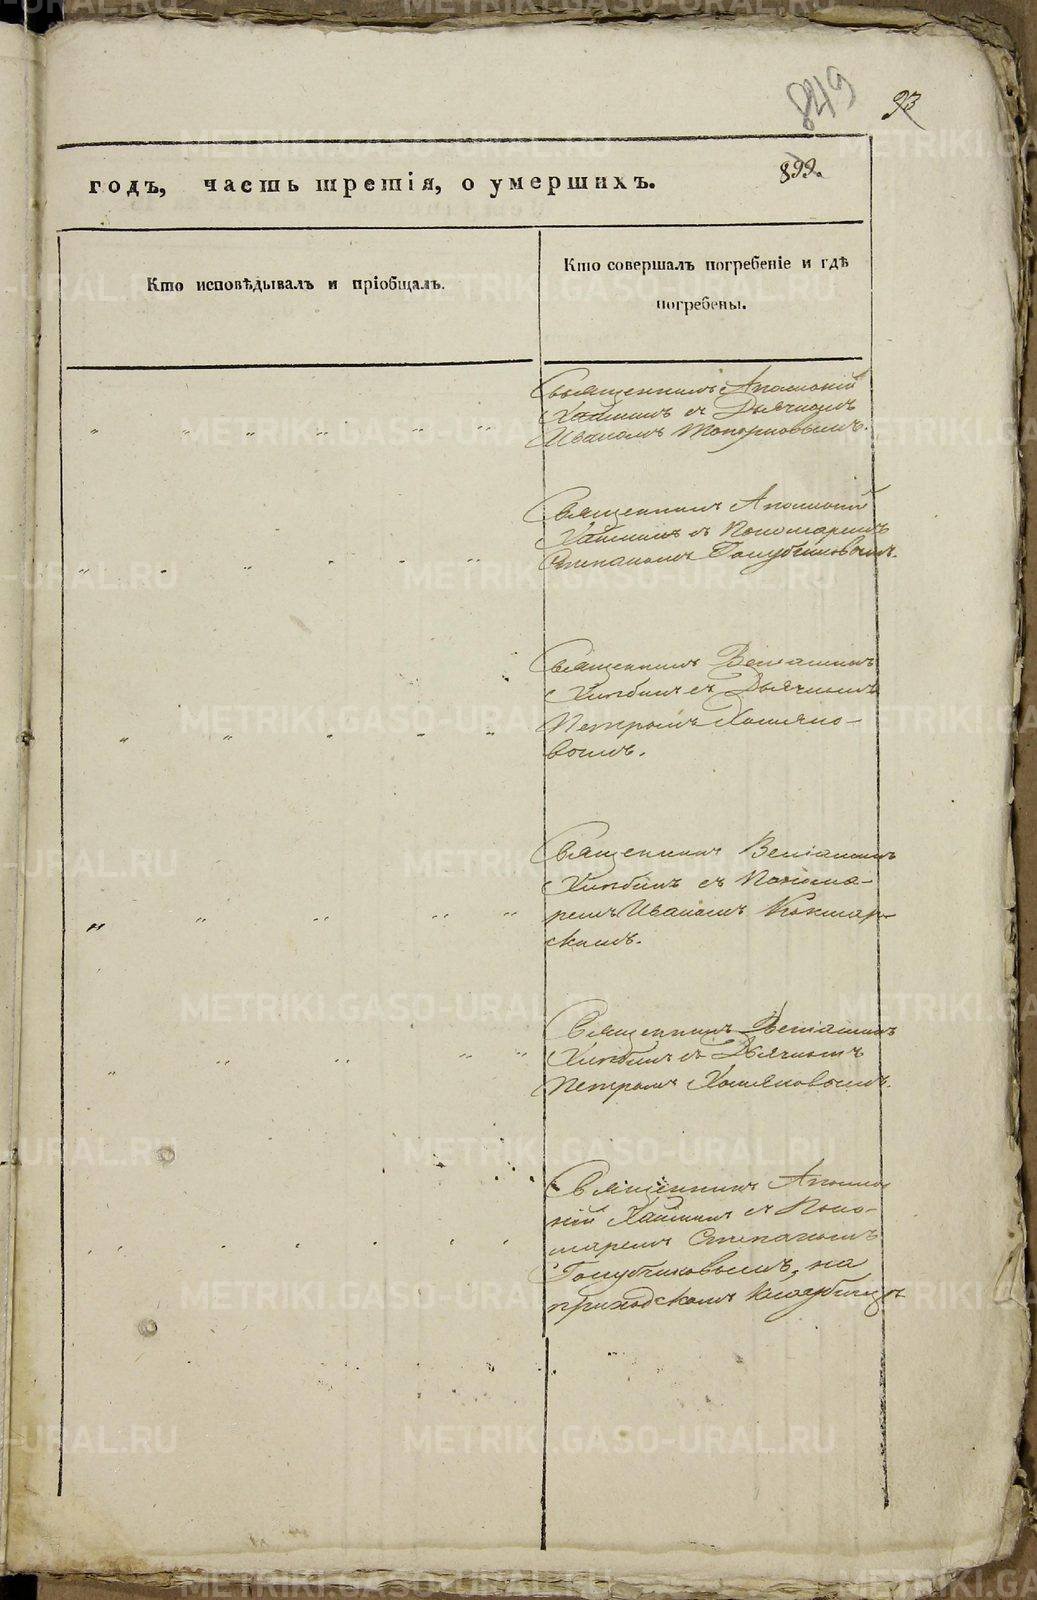 849
93
899.
годъ, часть третія, о умершихъ.
Кто исповѣдывалъ и пріобщалъ.
Кто совершалъ погребеніе и гдѣ
погребены.
Священникъ Аполлоній
съ Дьячкомъ
Иваномъ Топорковымъ.
Священникъ Аполлоній
съ Пономаремъ
Степаномъ Голубчиковымъ.
Священникъ Веніаминъ
съ Дьячкомъ
Петромъ Хомяко-
вымъ.
Священникъ Веніаминъ
съ Понома-
ремъ Иваномъ Кокшар-
скимъ.
Священникъ Веніаминъ
съ Дьячкомъ
Петромъ Хомяковымъ.
Священникъ Аполло
ній съ Поно-
маремъ Степаномъ
Голубчиковымъ, на
приходскомъ кладбищѣ
METRIKI.GASO-URAL.RU